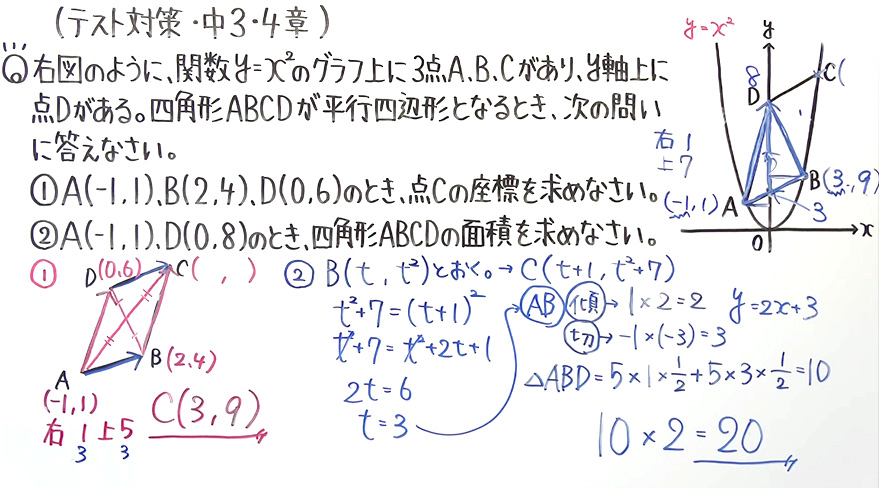 (テスト対策・中3・4章)
⑥右図のように、関数y=x²のグラフ上に3点A.B.Cがあり、y軸上に
点Dがある。四角形ABCDが平行四辺形となるとき、次の問い
に答えなさい。
①A(-1,1)、B(2,4)、D(0,6)のとき、点Cの座標を求めなさい。
②A(-1,1)、D(0,8)のとき、四角形ABCDの面積を求めなさい。
y=x²
y
8
D
C(
右1
上7
B(3,9)
(-1,1)
A
3
O
x
①
D(0,6)
C( , )
A
(-1,1)
B(2,4)
右 1 上 5
3 3
C(3,9)
② B(t, t²)とおく。→ C(t+1, t²+7)
t²+7=(t+1)²
t²+7=t²+2t+1
2t=6
t=3
AB 傾→1×2=2 y=2x+3
切→-1×(-3)=3
△ABD=5×1×1/2+5×3×1/2=10
10×2=20